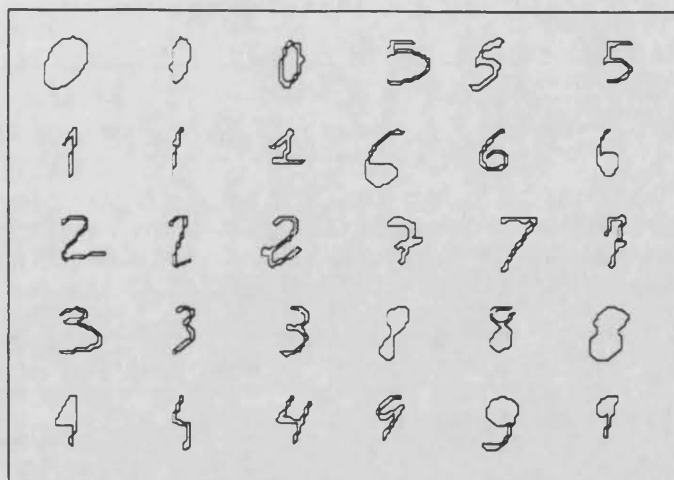 0 0 0 5 5 5
1 1 1 6 6 6
2 2 2 7 7 7
3 3 3 8 8 8
4 4 4 9 9 9